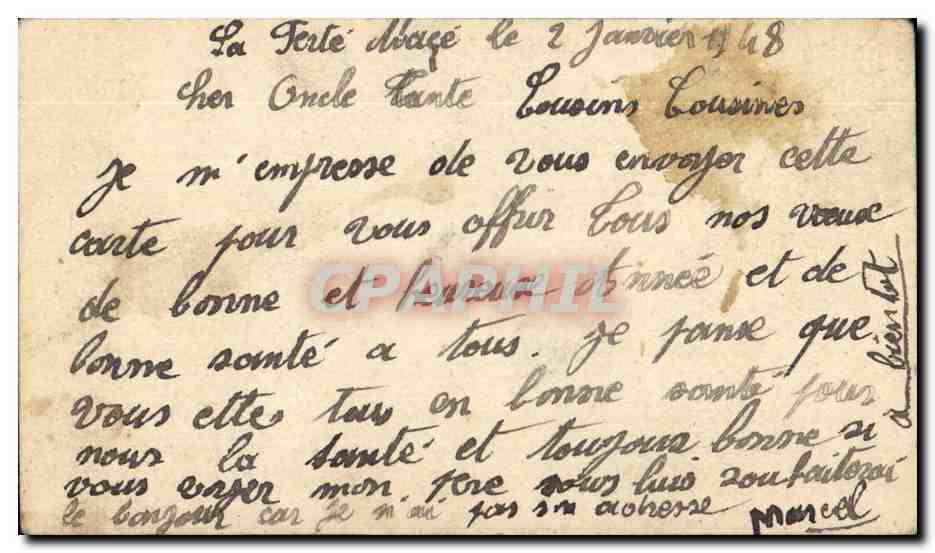 La Ferté Macé le 2 Janvier 1948
Cher Oncle Tante Cousins Cousines
Je m'empresse de vous envoyer cette
carte pour vous offrir tous nos vœux
de bonne et heureuse Année et de
bonne santé a tous. Je panse que
vous ettes tous en bonne santé pour
nous la santé et toujour bonne si
vous voyer mon pere vous lui souhaiterai
le bonjour car je n'ai pas son adresse
Marcel
a bientot
CPAPHIL